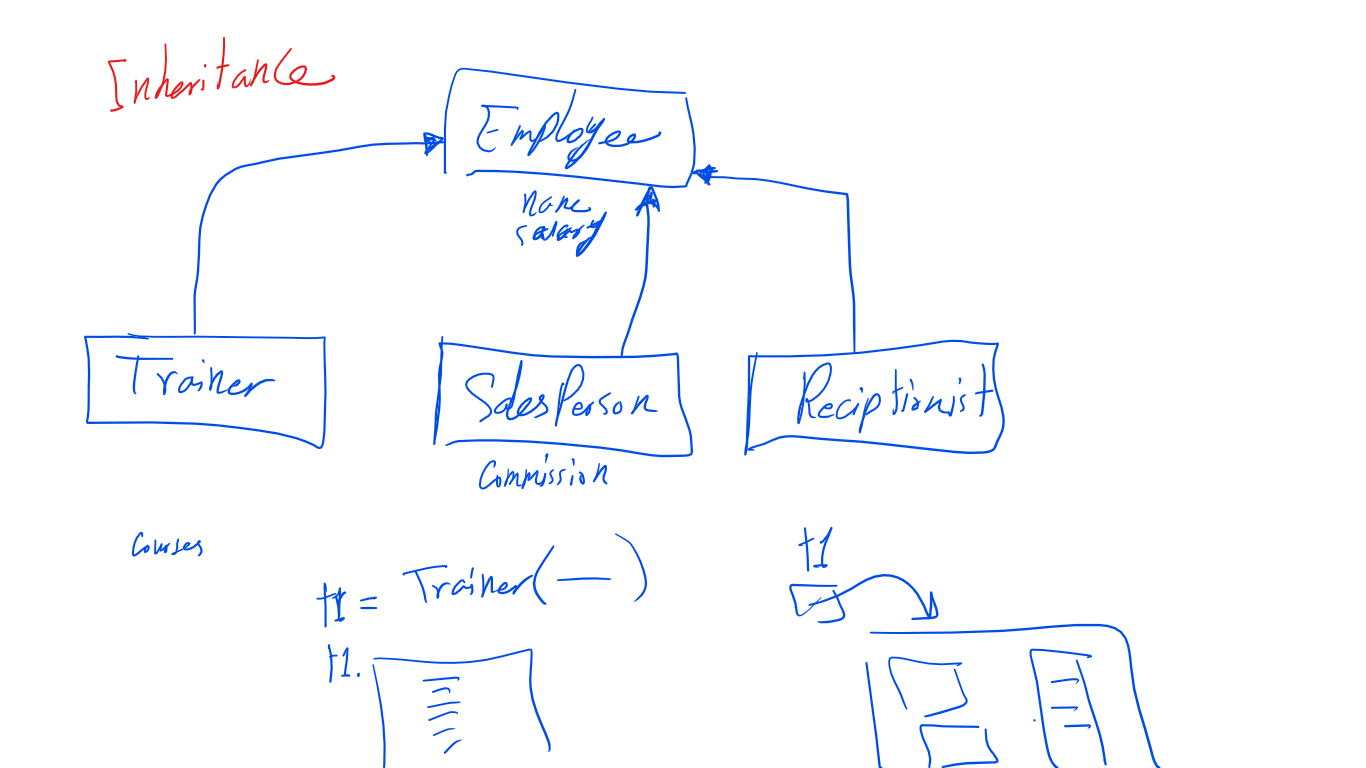 Inheritance
Employee
name
salary
Trainer
SalesPerson
Reciptionist
Commission
Courses
t1 = Trainer(—)
t1
t1.